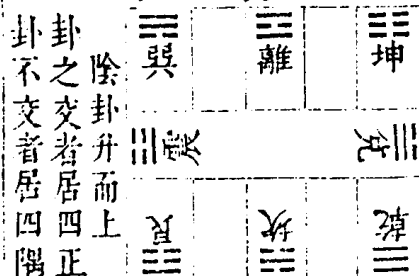 坤
離
巽
兌
震
乾
坎
艮
陰卦升而上
卦之交者居四正
卦不交者居四隅